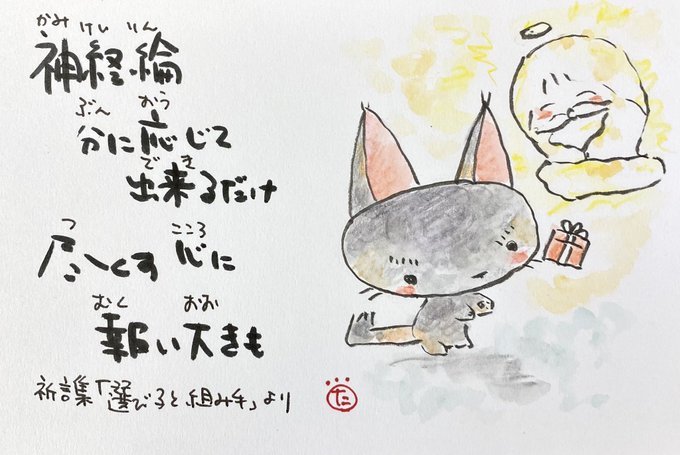 かみ けい りん
神経綸
ぶん おう
分に応じて
で き
出来るだけ
つ こころ
尽くす心に
むく おお
報い大きも
祈言集「選びろと組み手」より
た